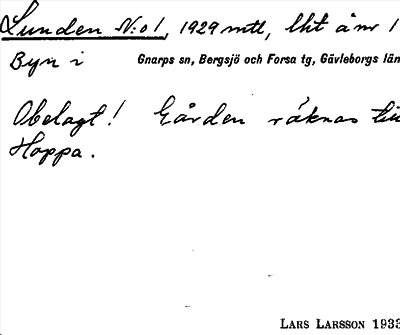 Lunden N:o 1, 1929 mtl, lht å nr 1
Byn i Gnarps sn, Bergsjö och Forsa tg, Gävleborgs län
Obelagt! Gården räknas till
Hoppa.
LARS LARSSON 1933